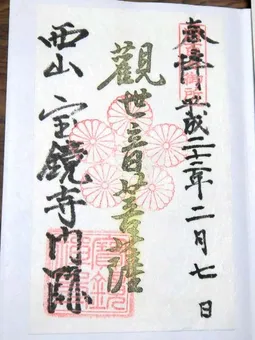 奉拝 平成二十二年二月七日
百々御所
觀世音菩薩
西山 宝鏡寺門跡